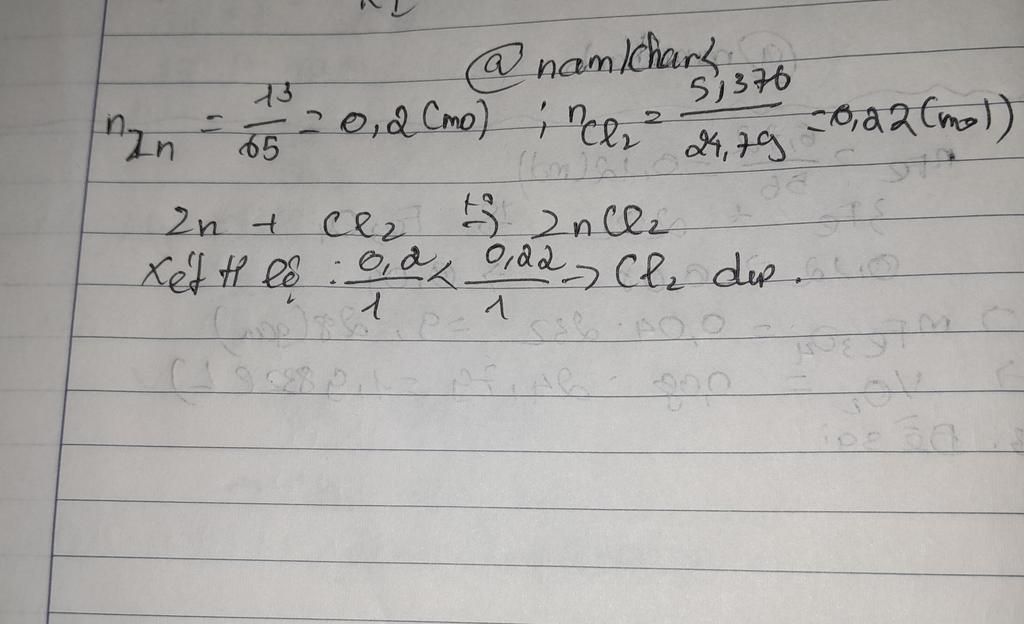 @ nam/chark
n Zn = 13/65 = 0,2 (mol) ; n Cl₂ = 5,376/24,79 = 0,22 (mol)
Zn + Cl₂ t° → ZnCl₂
Xét tỉ lệ : 0,2/1 < 0,22/1 → Cl₂ dư.